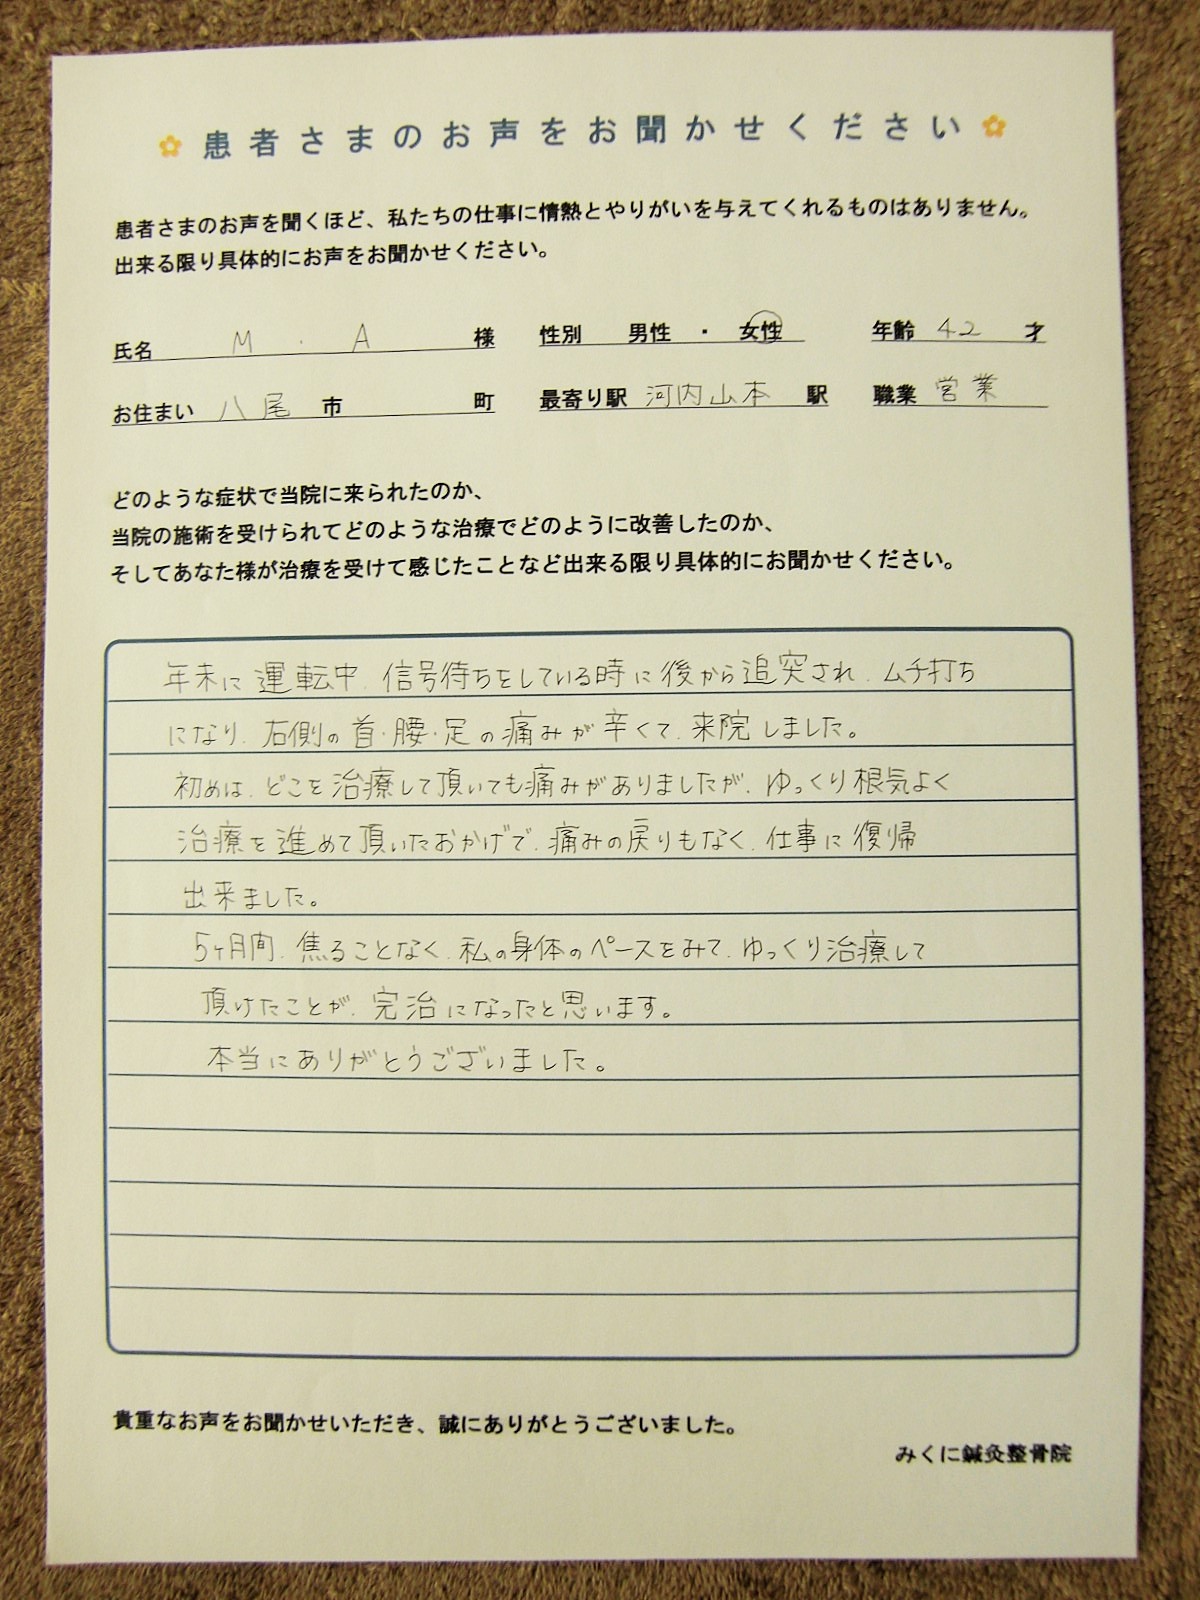 患者さまのお声をお聞かせください
患者さまのお声を聞くほど、私たちの仕事に情熱とやりがいを与えてくれるものはありません。
出来る限り具体的にお声をお聞かせください。
氏名 M・A 様 性別 男性 ・ 女性 年齢 42 才
お住まい 八尾 市 町 最寄り駅 河内山本 駅 職業 営業
どのような症状で当院に来られたのか、
当院の施術を受けられてどのような治療でどのように改善したのか、
そしてあなた様が治療を受けて感じたことなど出来る限り具体的にお聞かせください。
年末に運転中、信号待ちをしている時に後から追突され、ムチ打ち
になり、右側の首・腰・足の痛みが辛くて、来院しました。
初めは、どこを治療して頂いても痛みがありましたが、ゆっくり根気よく
治療を進めて頂いたおかげで、痛みの戻りもなく、仕事に復帰
出来ました。
5ヶ月間、焦ることなく、私の身体のペースをみて、ゆっくり治療して
頂けたことが、完治になったと思います。
本当にありがとうございました。
貴重なお声をお聞かせいただき、誠にありがとうございました。
みくに鍼灸整骨院